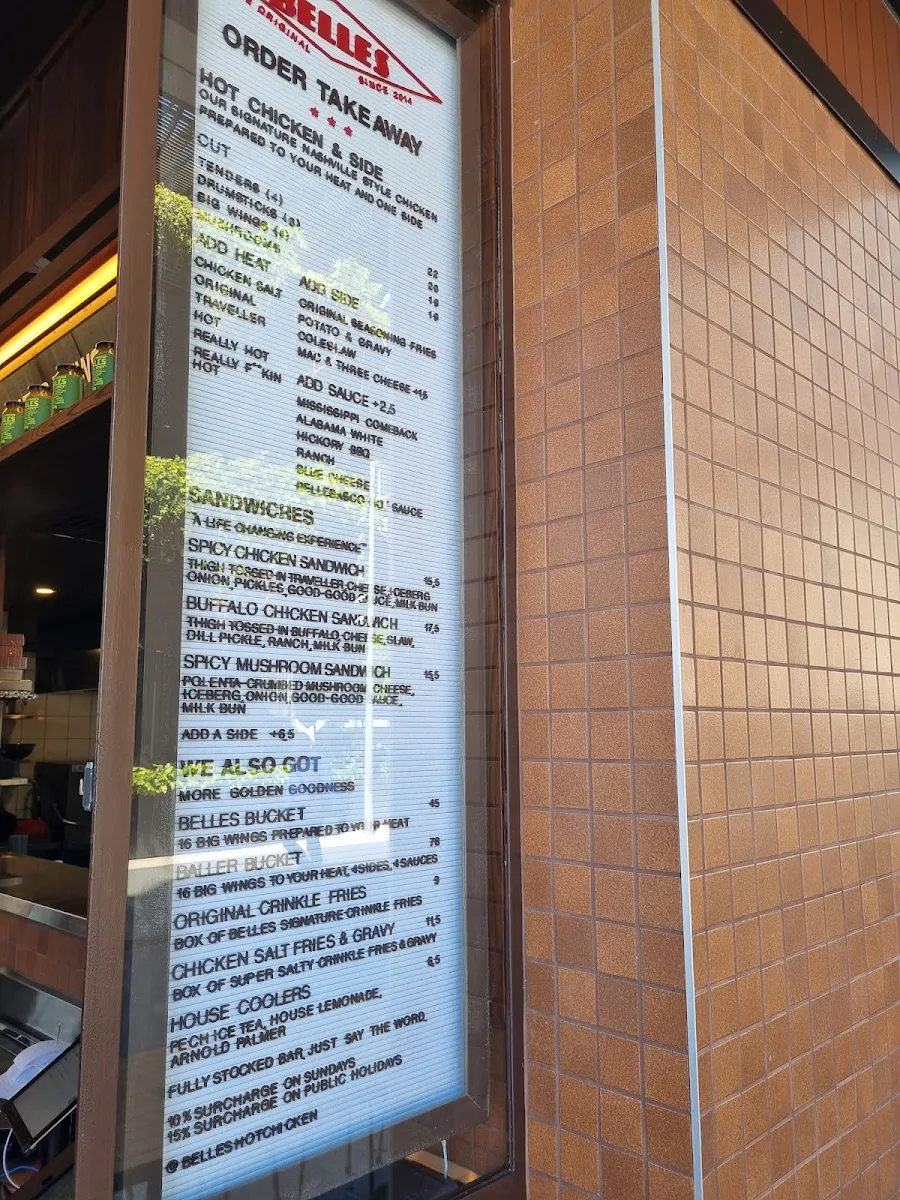 BELLES
ORIGINAL
SINCE 2014
ORDER TAKEAWAY
HOT CHICKEN & SIDE
OUR SIGNATURE NASHVILLE STYLE CHICKEN
PREPARED TO YOUR HEAT AND ONE SIDE
CUT
TENDERS (4) 22
DRUMSTICKS (3) 20
BIG WINGS 19
MUSHROOMS 19
ADD HEAT
CHICKEN SALT
ORIGINAL
TRAVELLER
HOT
REALLY HOT
REALLY F**KIN
HOT
ADD SIDE
ORIGINAL SEASONING FRIES
POTATO & GRAVY
COLESLAW
MAC & THREE CHEESE +1,5
ADD SAUCE +2,5
MISSISSIPPI COMEBACK
ALABAMA WHITE
HICKORY BBQ
RANCH
BLUE CHEESE
SAUCE
SANDWICHES
"A LIFE CHANGING EXPERIENCE"
SPICY CHICKEN SANDWICH 15,5
THIGH TOSSED IN TRAVELLER, CHEESE, ICEBERG
ONION, PICKLES, GOOD-GOOD SAUCE, MILK BUN
BUFFALO CHICKEN SANDWICH 17,5
THIGH TOSSED IN BUFFALO, CHEESE, SLAW,
DILL PICKLE, RANCH, MILK BUN
SPICY MUSHROOM SANDWICH 15,5
POLENTA-CRUMBED MUSHROOM, CHEESE,
ICEBERG, ONION, GOOD-GOOD SAUCE,
MILK BUN
ADD A SIDE +6,5
WE ALSO GOT
MORE GOLDEN GOODNESS
BELLES BUCKET 45
16 BIG WINGS PREPARED TO YOUR HEAT
BALLER BUCKET 78
16 BIG WINGS TO YOUR HEAT, 4 SIDES, 4 SAUCES
ORIGINAL CRINKLE FRIES 9
BOX OF BELLES SIGNATURE CRINKLE FRIES
CHICKEN SALT FRIES & GRAVY 11,5
BOX OF SUPER SALTY CRINKLE FRIES & GRAVY
HOUSE COOLERS 6,5
PECH ICE TEA, HOUSE LEMONADE,
ARNOLD PALMER
FULLY STOCKED BAR, JUST SAY THE WORD.
10% SURCHARGE ON SUNDAYS
15% SURCHARGE ON PUBLIC HOLIDAYS
@BELLESHOTCHICKEN